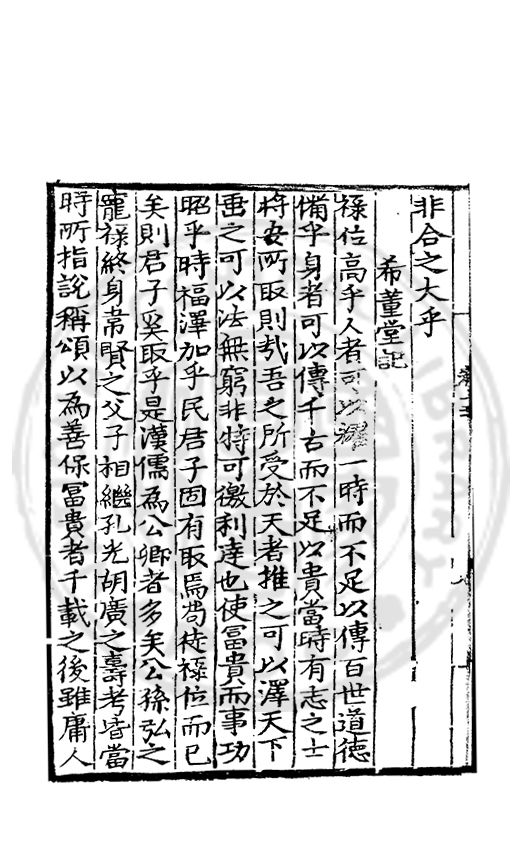 非合之大乎
希董堂記
祿位高乎人者可以耀一時而不足以傳百世道德
備乎身者可以傳千古而不足以貴當時有志之士
將安所取則哉吾之所受於天者推之可以澤天下
垂之可以法無窮非特可徼利達也使冨貴而事功
昭乎時福澤加乎民君子固有取焉茍徒祿位而已
矣則君子奚取乎是漢儒為公卿者多矣公孫弘之
寵祿終身韋賢之父子相繼孔光胡廣之壽考皆當
時所指說稱頌以為善保冨貴者千載之後雖庸人